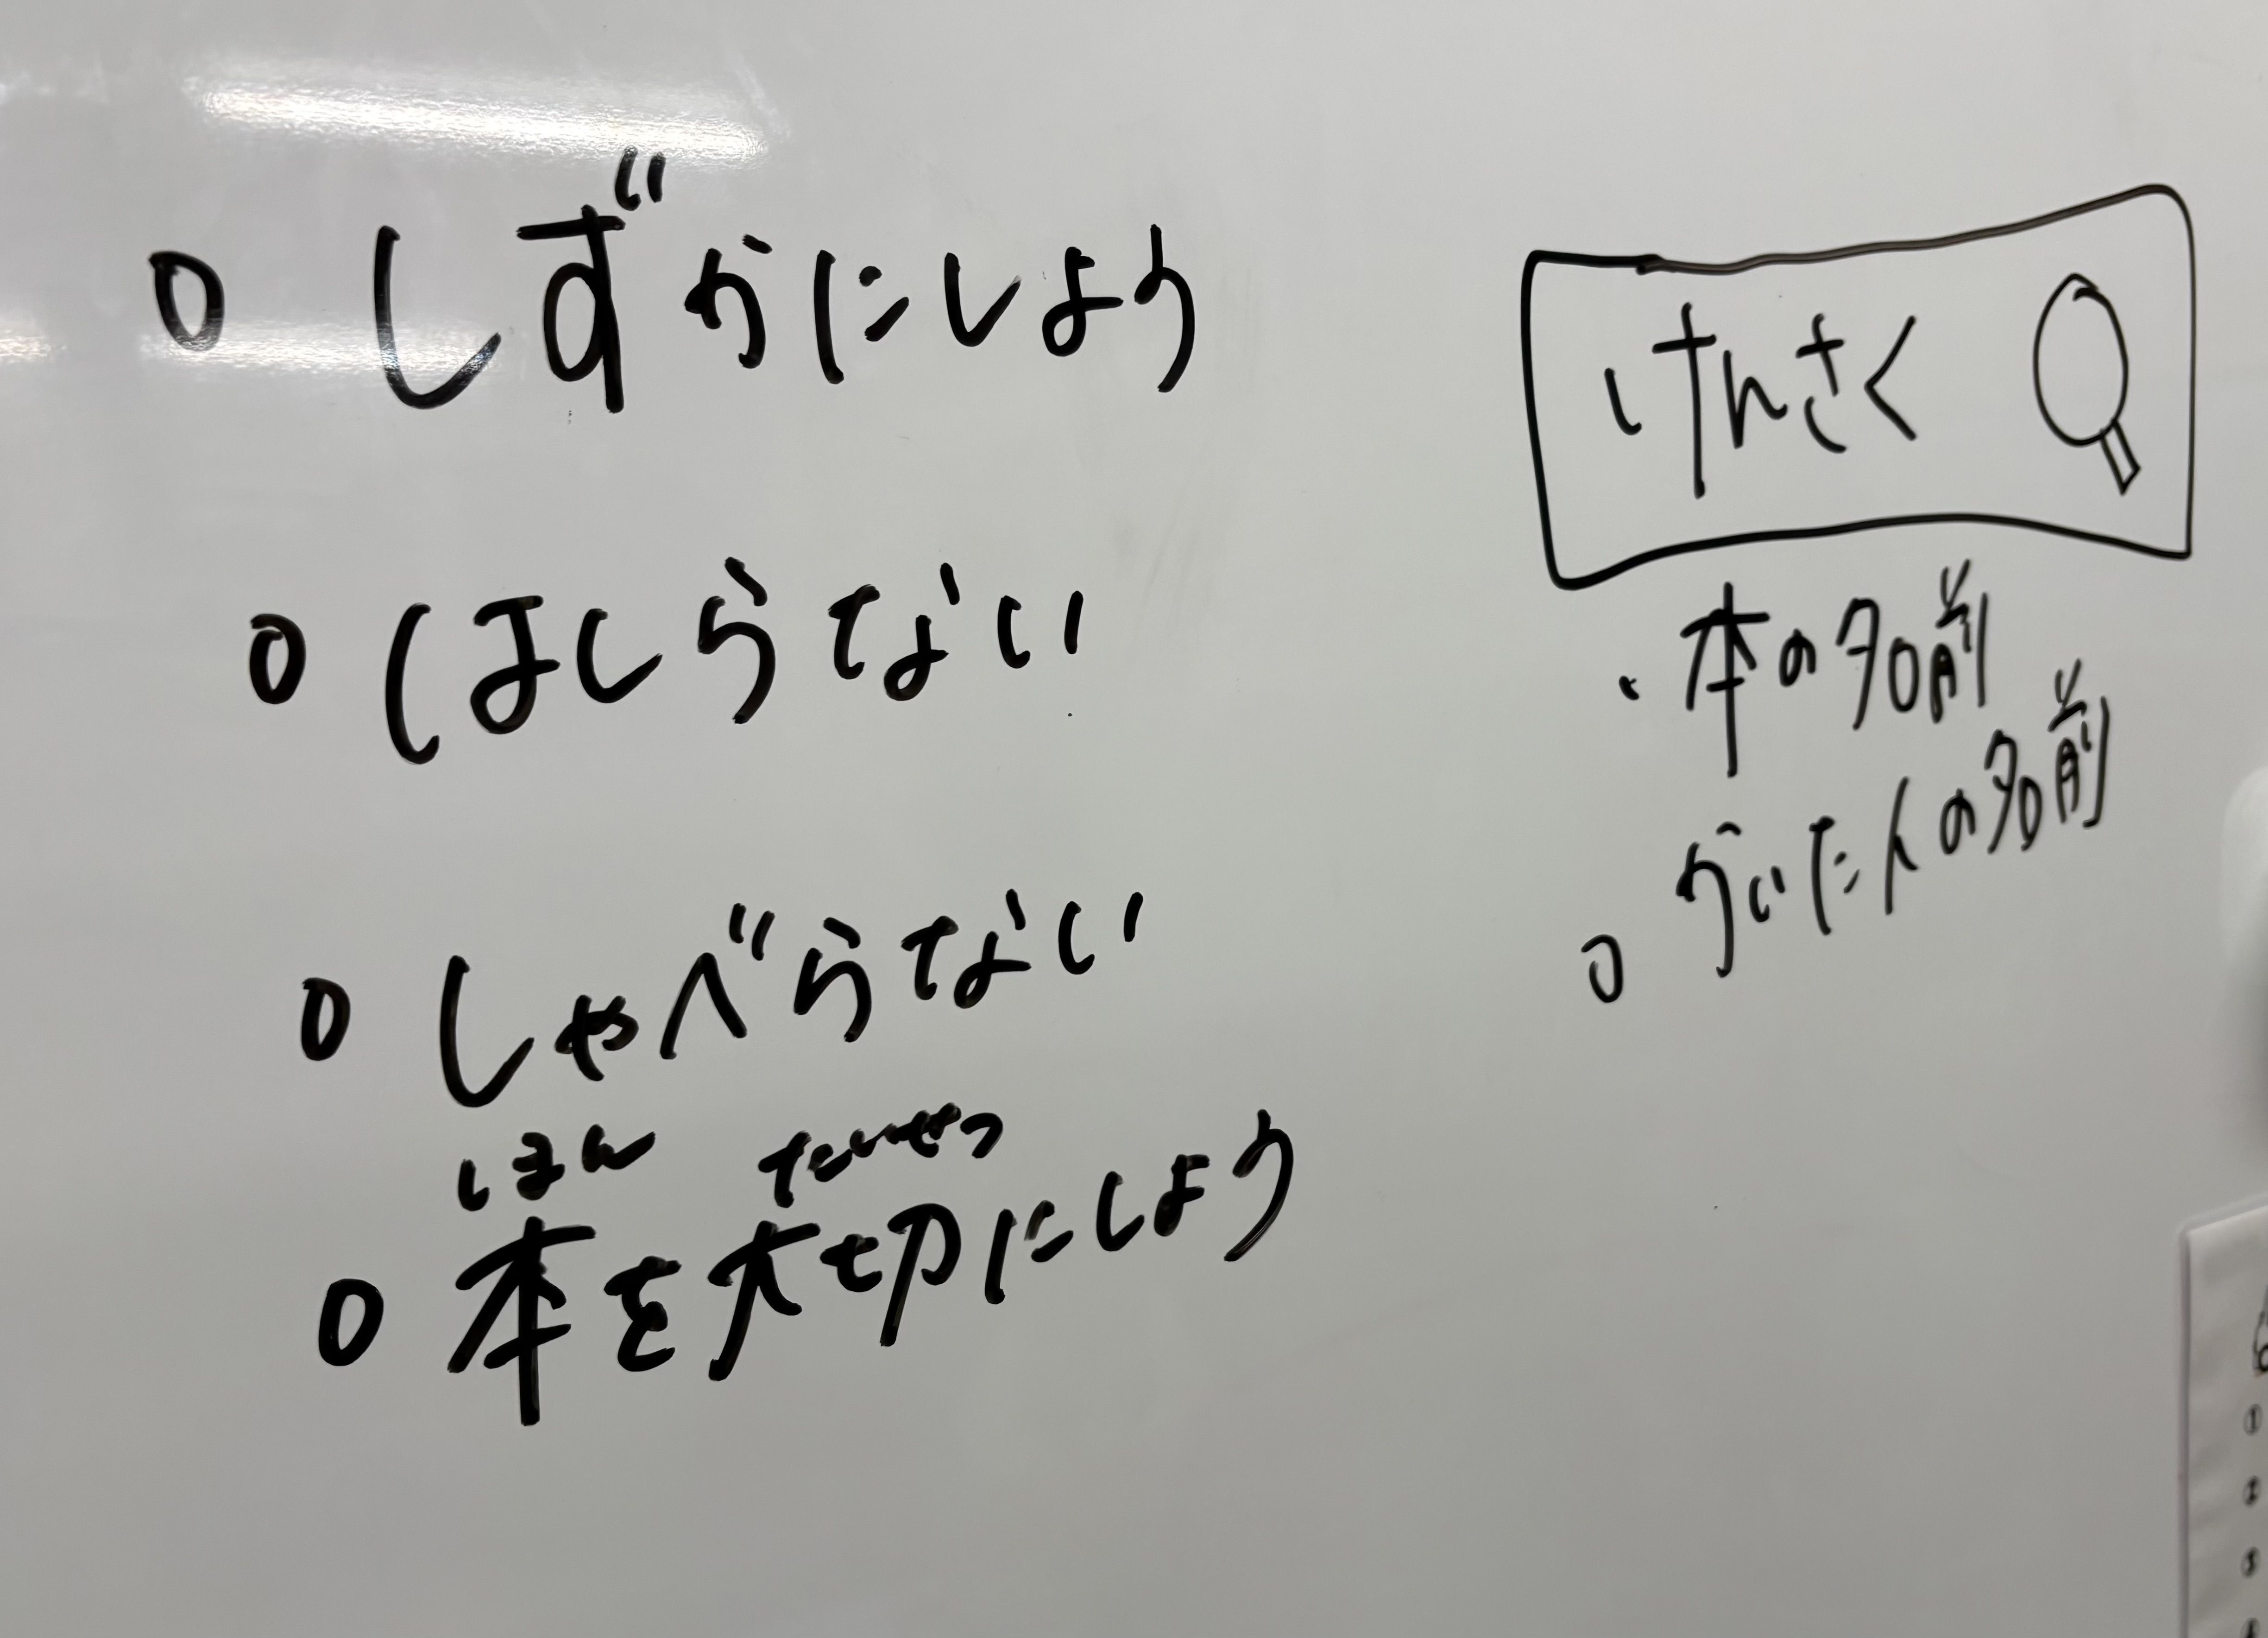 ○ しずかにしよう
○ はしらない
○ しゃべらない
ほん たいせつ
○ 本を大切にしよう
けんさく
・本の名前
○ かいた人の名前
①
②
③